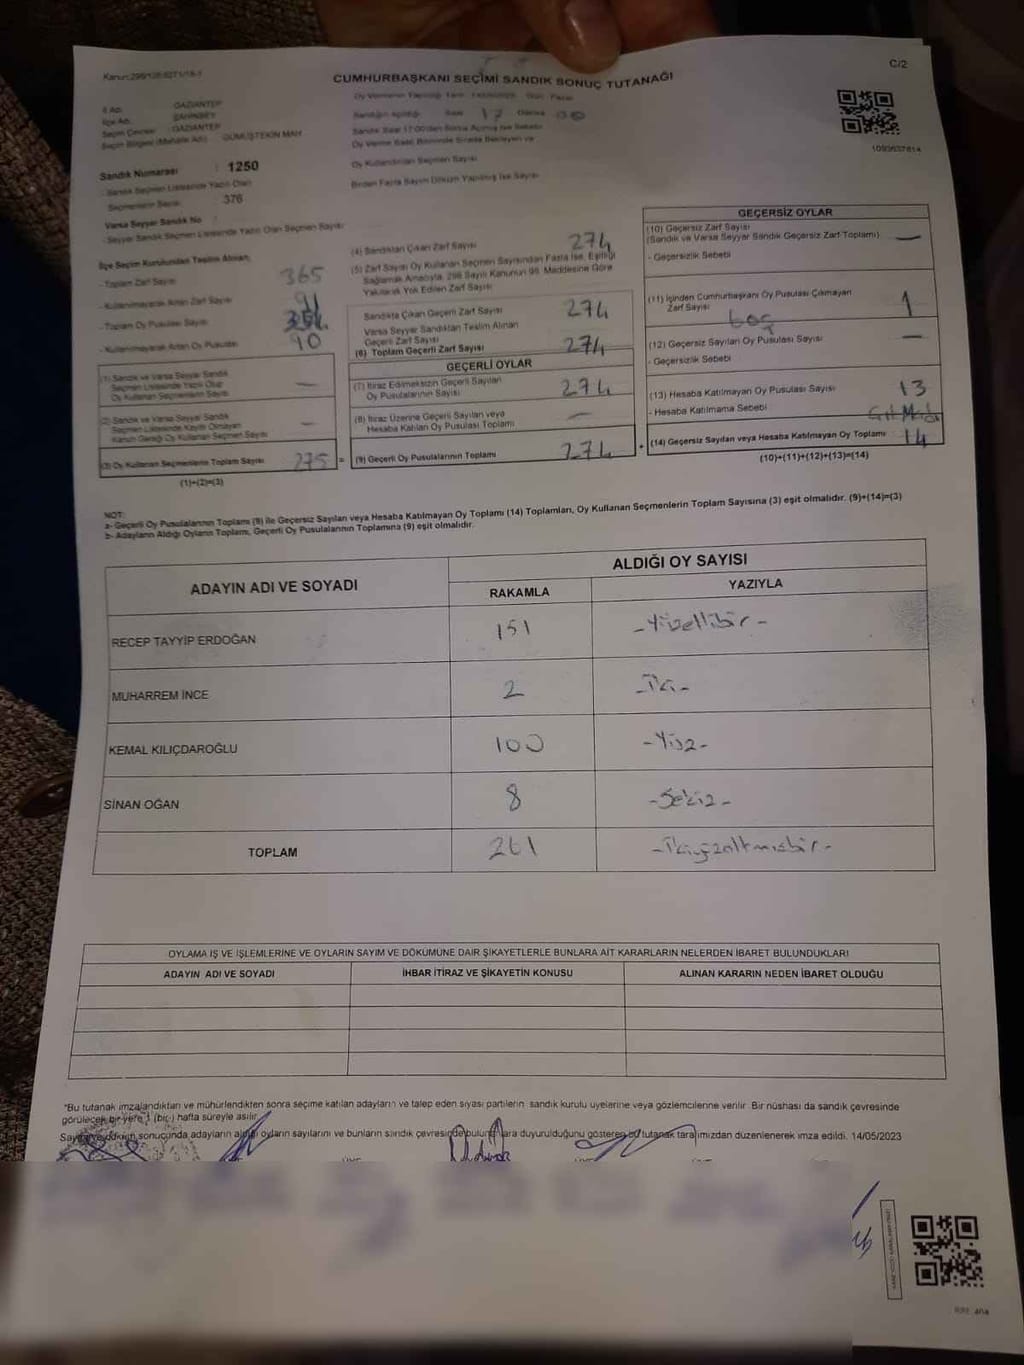 C/2
CUMHURBAŞKANI SEÇİMİ SANDIK SONUÇ TUTANAĞI
İl Adı : GAZİANTEP
İlçe Adı : ŞAHİNBEY
Seçim Çevresi : GAZİANTEP
Seçim Bölgesi (Mahalle Adı) : GÜMÜŞTEKİN MAH
Sandık Numarası : 1250
- Sandık Seçmen Listesinde Yazılı Olan
Seçmenlerin Sayısı : 376
Varsa Seyyar Sandık No :
- Seyyar Sandık Seçmen Listesinde Yazılı Olan Seçmen Sayısı
Oy Kullandırılan Seçmen Sayısı
Birden Fazla Sayım Döküm Yapılmış İse Sayısı
1093637614
İlçe Seçim Kurulundan Teslim Alınan,
- Toplam Zarf Sayısı 365
- Kullanılmayarak Artan Zarf Sayısı 91
- Toplam Oy Pusulası Sayısı
- Kullanılmayarak Artan Oy Pusulası 90
(1) Sandık ve Varsa Seyyar Sandık
Seçmen Listesinde Yazılı Olup
Oy Kullanan Seçmenlerin Sayısı —
(2) Sandık ve Varsa Seyyar Sandık
Seçmen Listesinde Kayıtlı Olmayan
Kanun Gereği Oy Kullanan Seçmen Sayısı —
(3) Oy Kullanan Seçmenlerin Toplam Sayısı 275 =
(1)+(2)=(3)
(4) Sandıktan Çıkan Zarf Sayısı 274
(5) Zarf Sayısı Oy Kullanan Seçmen Sayısından Fazla İse, Eşitliği
Sağlamak Amacıyla, 298 Sayılı Kanunun 98. Maddesine Göre
Yakılarak Yok Edilen Zarf Sayısı
Sandıkta Çıkan Geçerli Zarf Sayısı 274
Varsa Seyyar Sandıktan Teslim Alınan
Geçerli Zarf Sayısı
(6) Toplam Geçerli Zarf Sayısı 274
GEÇERLİ OYLAR
(7) İtiraz Edilmeksizin Geçerli Sayılan
Oy Pusulalarının Sayısı 274
(8) İtiraz Üzerine Geçerli Sayılan veya
Hesaba Katılan Oy Pusulası Toplamı —
(9) Geçerli Oy Pusulalarının Toplamı 274 +
GEÇERSİZ OYLAR
(10) Geçersiz Zarf Sayısı
(Sandık ve Varsa Seyyar Sandık Geçersiz Zarf Toplamı) —
- Geçersizlik Sebebi
(11) İçinden Cumhurbaşkanı Oy Pusulası Çıkmayan
Zarf Sayısı 1
boş
(12) Geçersiz Sayılan Oy Pusulası Sayısı —
- Geçersizlik Sebebi
(13) Hesaba Katılmayan Oy Pusulası Sayısı 13
- Hesaba Katılmama Sebebi
(14) Geçersiz Sayılan veya Hesaba Katılmayan Oy Toplamı 14
(10)+(11)+(12)+(13)=(14)
NOT:
a- Geçerli Oy Pusulalarının Toplamı (9) ile Geçersiz Sayılan veya Hesaba Katılmayan Oy Toplamı (14) Toplamları, Oy Kullanan Seçmenlerin Toplam Sayısına (3) eşit olmalıdır. (9)+(14)=(3)
b- Adayların Aldığı Oyların Toplamı, Geçerli Oy Pusulalarının Toplamına (9) eşit olmalıdır.
ADAYIN ADI VE SOYADI
ALDIĞI OY SAYISI
RAKAMLA YAZIYLA
RECEP TAYYİP ERDOĞAN 151 -Yüzellibir-
MUHARREM İNCE 2 -İki-
KEMAL KILIÇDAROĞLU 100 -Yüz-
SİNAN OĞAN 8 -Sekiz-
TOPLAM 261 -İkiyüzaltmışbir-
OYLAMA İŞ VE İŞLEMLERİNE VE OYLARIN SAYIM VE DÖKÜMÜNE DAİR ŞİKAYETLERLE BUNLARA AİT KARARLARIN NELERDEN İBARET BULUNDUKLARI
ADAYIN ADI VE SOYADI İHBAR İTİRAZ VE ŞİKAYETİN KONUSU ALINAN KARARIN NEDEN İBARET OLDUĞU
*Bu tutanak imzalandıktan ve mühürlendikten sonra seçime katılan adayların ve talep eden siyasi partilerin sandık kurulu üyelerine veya gözlemcilerine verilir. Bir nüshası da sandık çevresinde
görülecek bir yere 1 (bir) hafta süreyle asılır.
Sayım ve döküm sonucunda adayların aldığı oyların sayılarını ve bunların sandık çevresinde bulunanlara duyurulduğunu gösteren bu tutanak tarafımızdan düzenlenerek imza edildi. 14/05/2023